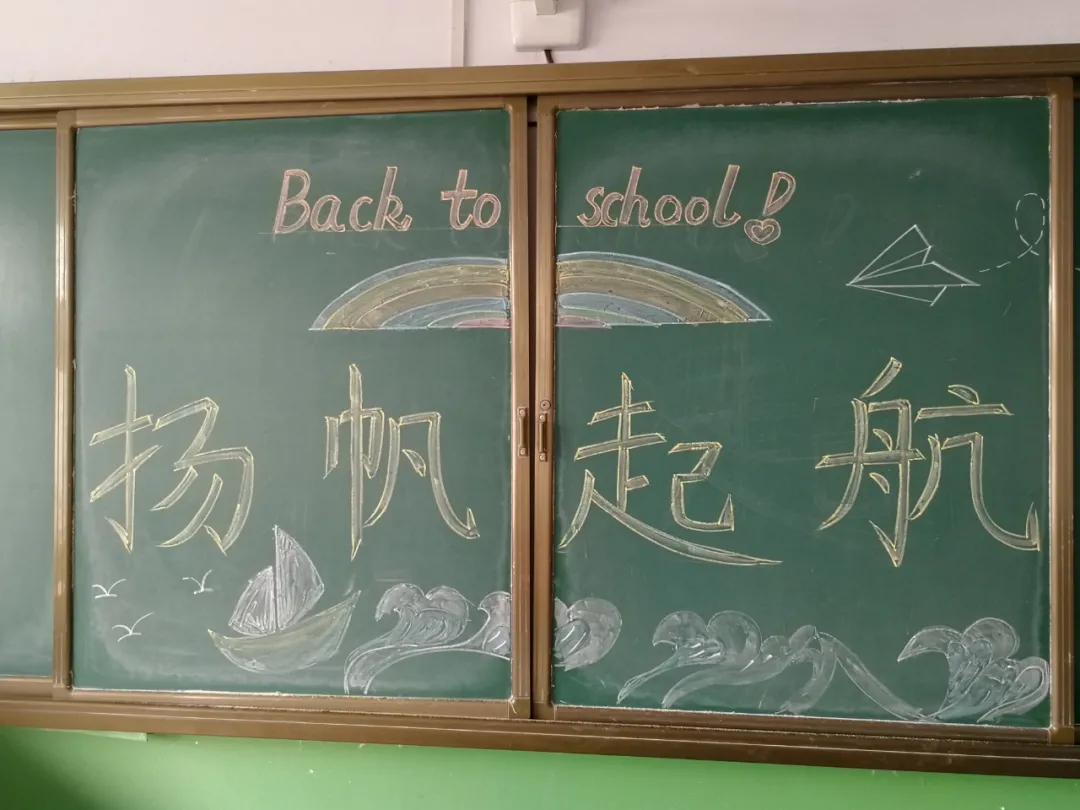 Back to school!
扬帆起航